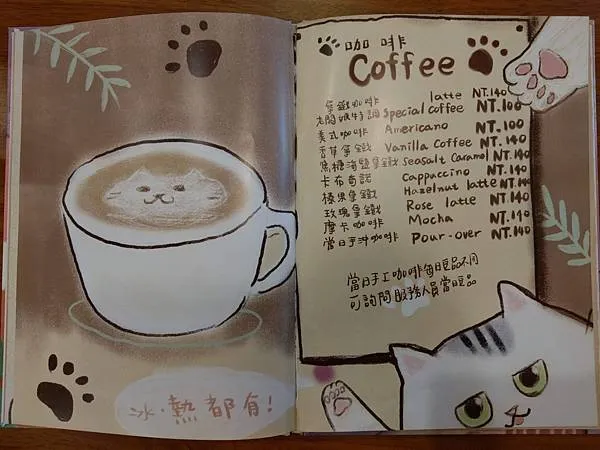 冰·熱都有!
咖啡
Coffee
拿鐵咖啡 latte NT.140
老闆娘特調 Special coffee NT.100
美式咖啡 Americano NT.100
香草拿鐵 Vanilla Coffee NT.140
焦糖海鹽拿鐵 Seasalt Caramel NT.140
卡布奇諾 Cappuccino NT.140
榛果拿鐵 Hazelnut latte NT.140
玫瑰拿鐵 Rose latte NT.140
摩卡咖啡 Mocha NT.140
當日手沖咖啡 Pour-over NT.140
當日手工咖啡每日豆品不同
可詢問服務人員當日豆品